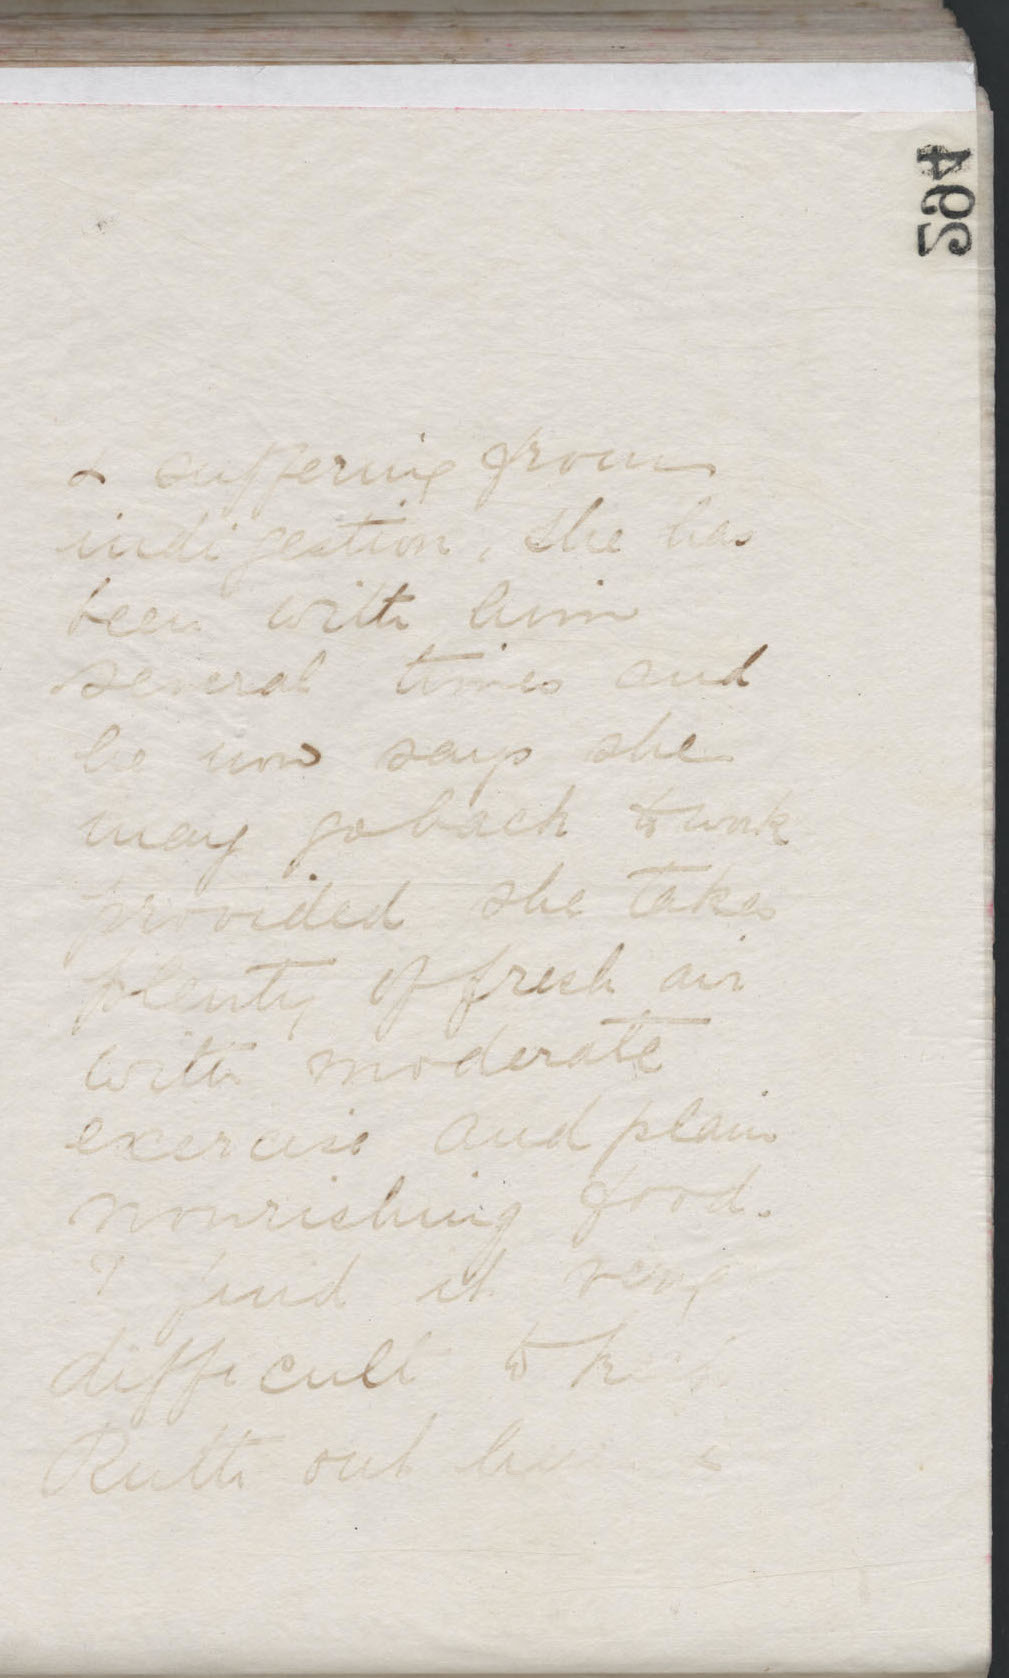 494
& suffering from
indigestion, she has
been with him
several times and
he now says she
may go back to work
provided she takes
plenty of fresh air
with moderate
exercise and plain
nourishing food.
I find it very
difficult to keep
Ruth out here &